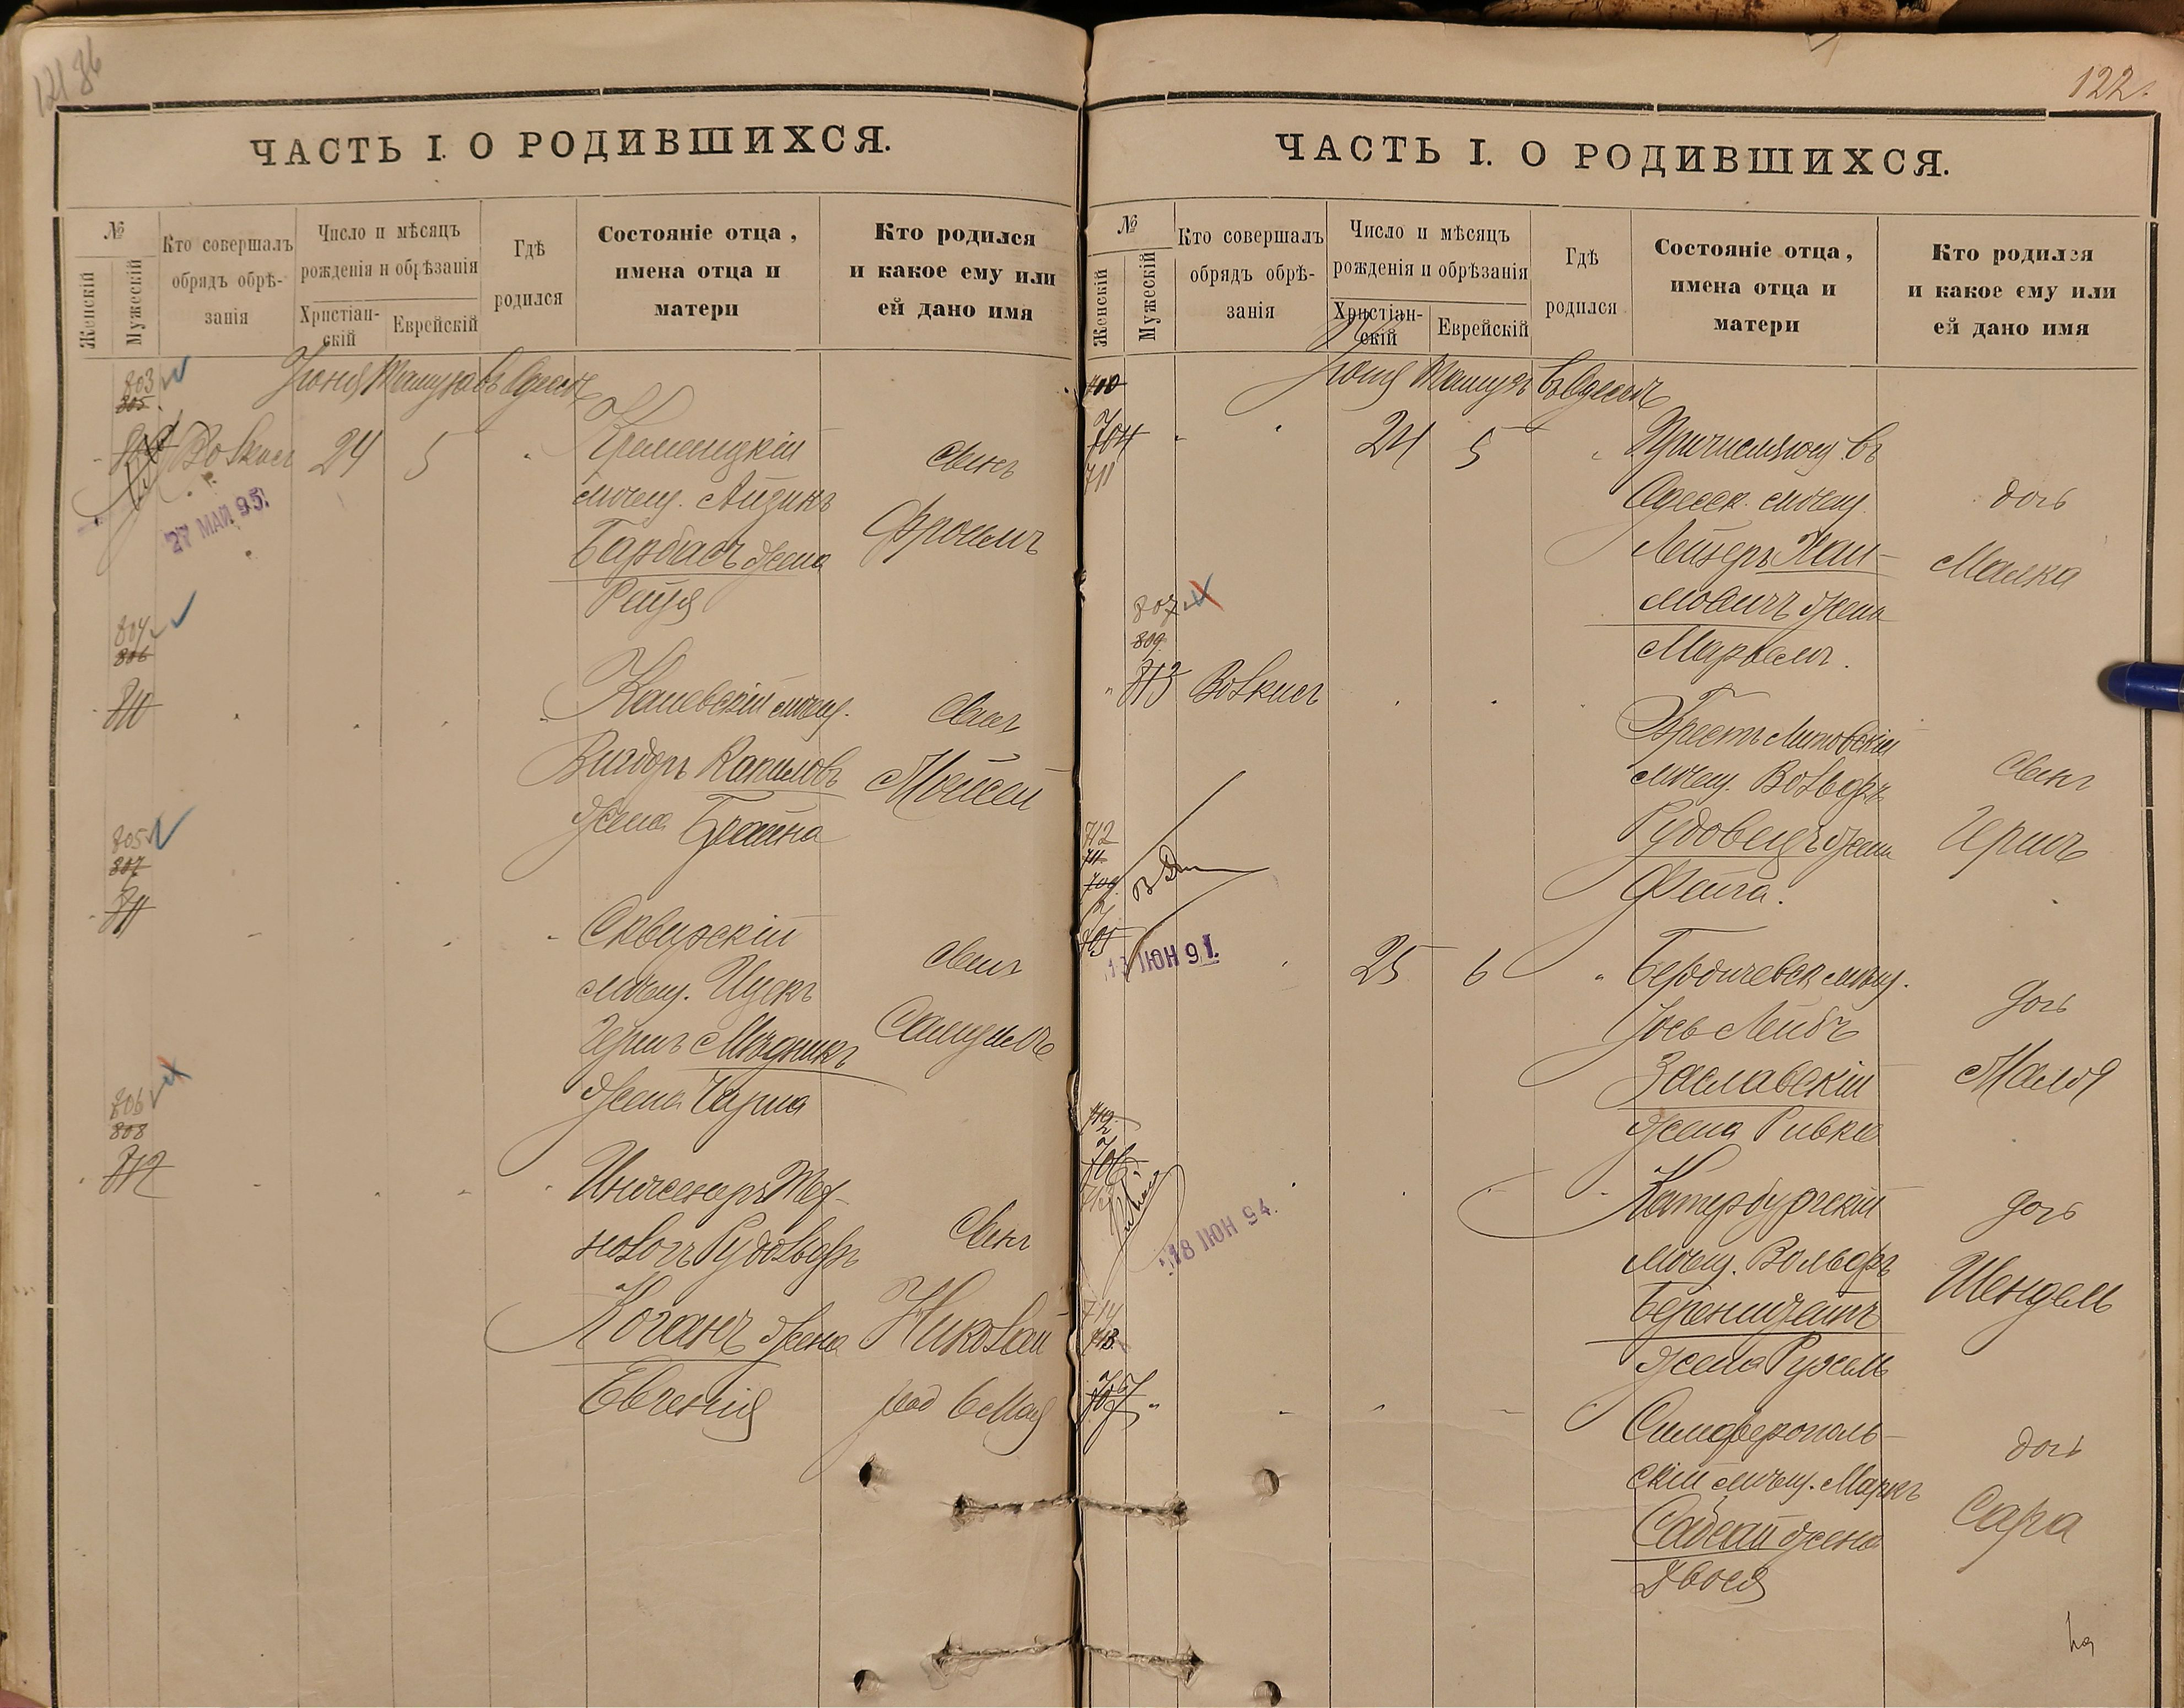 ЧАСТЬ I. О РОДИВШИХСЯ.
№
Женскій
Мужескій
Кто совершалъ
обрядъ обрѣ-
занія
Число и мѣсяцъ
рожденія и обрѣзанія
Христіан-
скій
Еврейскій
Гдѣ
родился
Состояніе отца,
имена отца и
матери
Кто родился
и какое ему или
ей дано имя
803
805
Іюня Тамуза въ Одессѣ
24
5
Кременецкій
мѣщ. Айзикъ
Барбасъ жена
Рейзя
сынъ
Фроимъ
27 МАЙ 95.
804
806
810
Каневскій мѣщ.
Вигдоръ Капиловъ
жена Брайна
сынъ
Мойсей
805
807
811
Сквирскій
мѣщ. Ицекъ
Гершъ Мѣдникъ
жена Чарна
сынъ
Самуилъ
806
808
812
Инженеръ Тех-
нологъ Рудольфъ
Коганъ жена
Евгенія
сынъ
Николай
род 6 Мая
122.
ЧАСТЬ I. О РОДИВШИХСЯ.
№
Женскій
Мужескій
Кто совершалъ
обрядъ обрѣ-
занія
Число и мѣсяцъ
рожденія и обрѣзанія
Христіан-
скій
Еврейскій
Гдѣ
родился
Состояніе отца,
имена отца и
матери
Кто родился
и какое ему или
ей дано имя
Іюня Тамузъ въ Одессѣ
704
711
24
5
Причисляющ. въ
Одесск. мѣщ.
Лейзеръ Хаи-
мовичъ жена
Марьемъ.
дочь
Малка
807
809
813
Брестъ Литовскій
мѣщ. Вольфъ
Рудовецъ жена
Фейга.
сынъ
Гершъ
712
711
709
705
ІЮН 91.
25
6
Бердичевск мѣщ.
Іось Лейбъ
Заславскій
жена Ривка
дочь
Маля
706
18 ІЮН 94.
Катербургскій
мѣщ. Вольфъ
Беренштейнъ
жена Рухель
дочь
Шендель
714
713
707
Симферополь-
скій мѣщ. Маркъ
жена
Двося
дочь
Сара